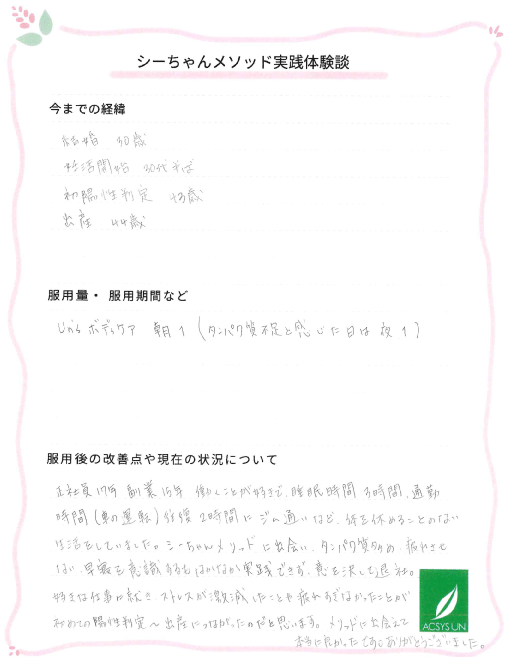 シーちゃんメソッド実践体験談
今までの経緯
結婚 30歳
妊活開始 30代半ば
初陽性判定 43歳
出産 44歳
服用量・服用期間など
Un's ボディケア 朝1(タンパク質不足と感じた日は夜1)
服用後の改善点や現在の状況について
正社員17年 副業15年 働くことが好きで、睡眠時間3時間、通勤
時間(車の運転)往復2時間にジム通いなど、体を休めることのない
生活をしていました。シーちゃんメソッドに出会い、タンパク質多め、疲れさせ
ない、早寝を意識するもなかなか実践できず、意を決して退社。
好きな仕事に就き、ストレスが激減したことや疲れすぎなかったことが
初めての陽性判定〜出産につながったのだと思います。メソッドに出会えて
本当に良かったです。ありがとうございました。
ACSYS UN